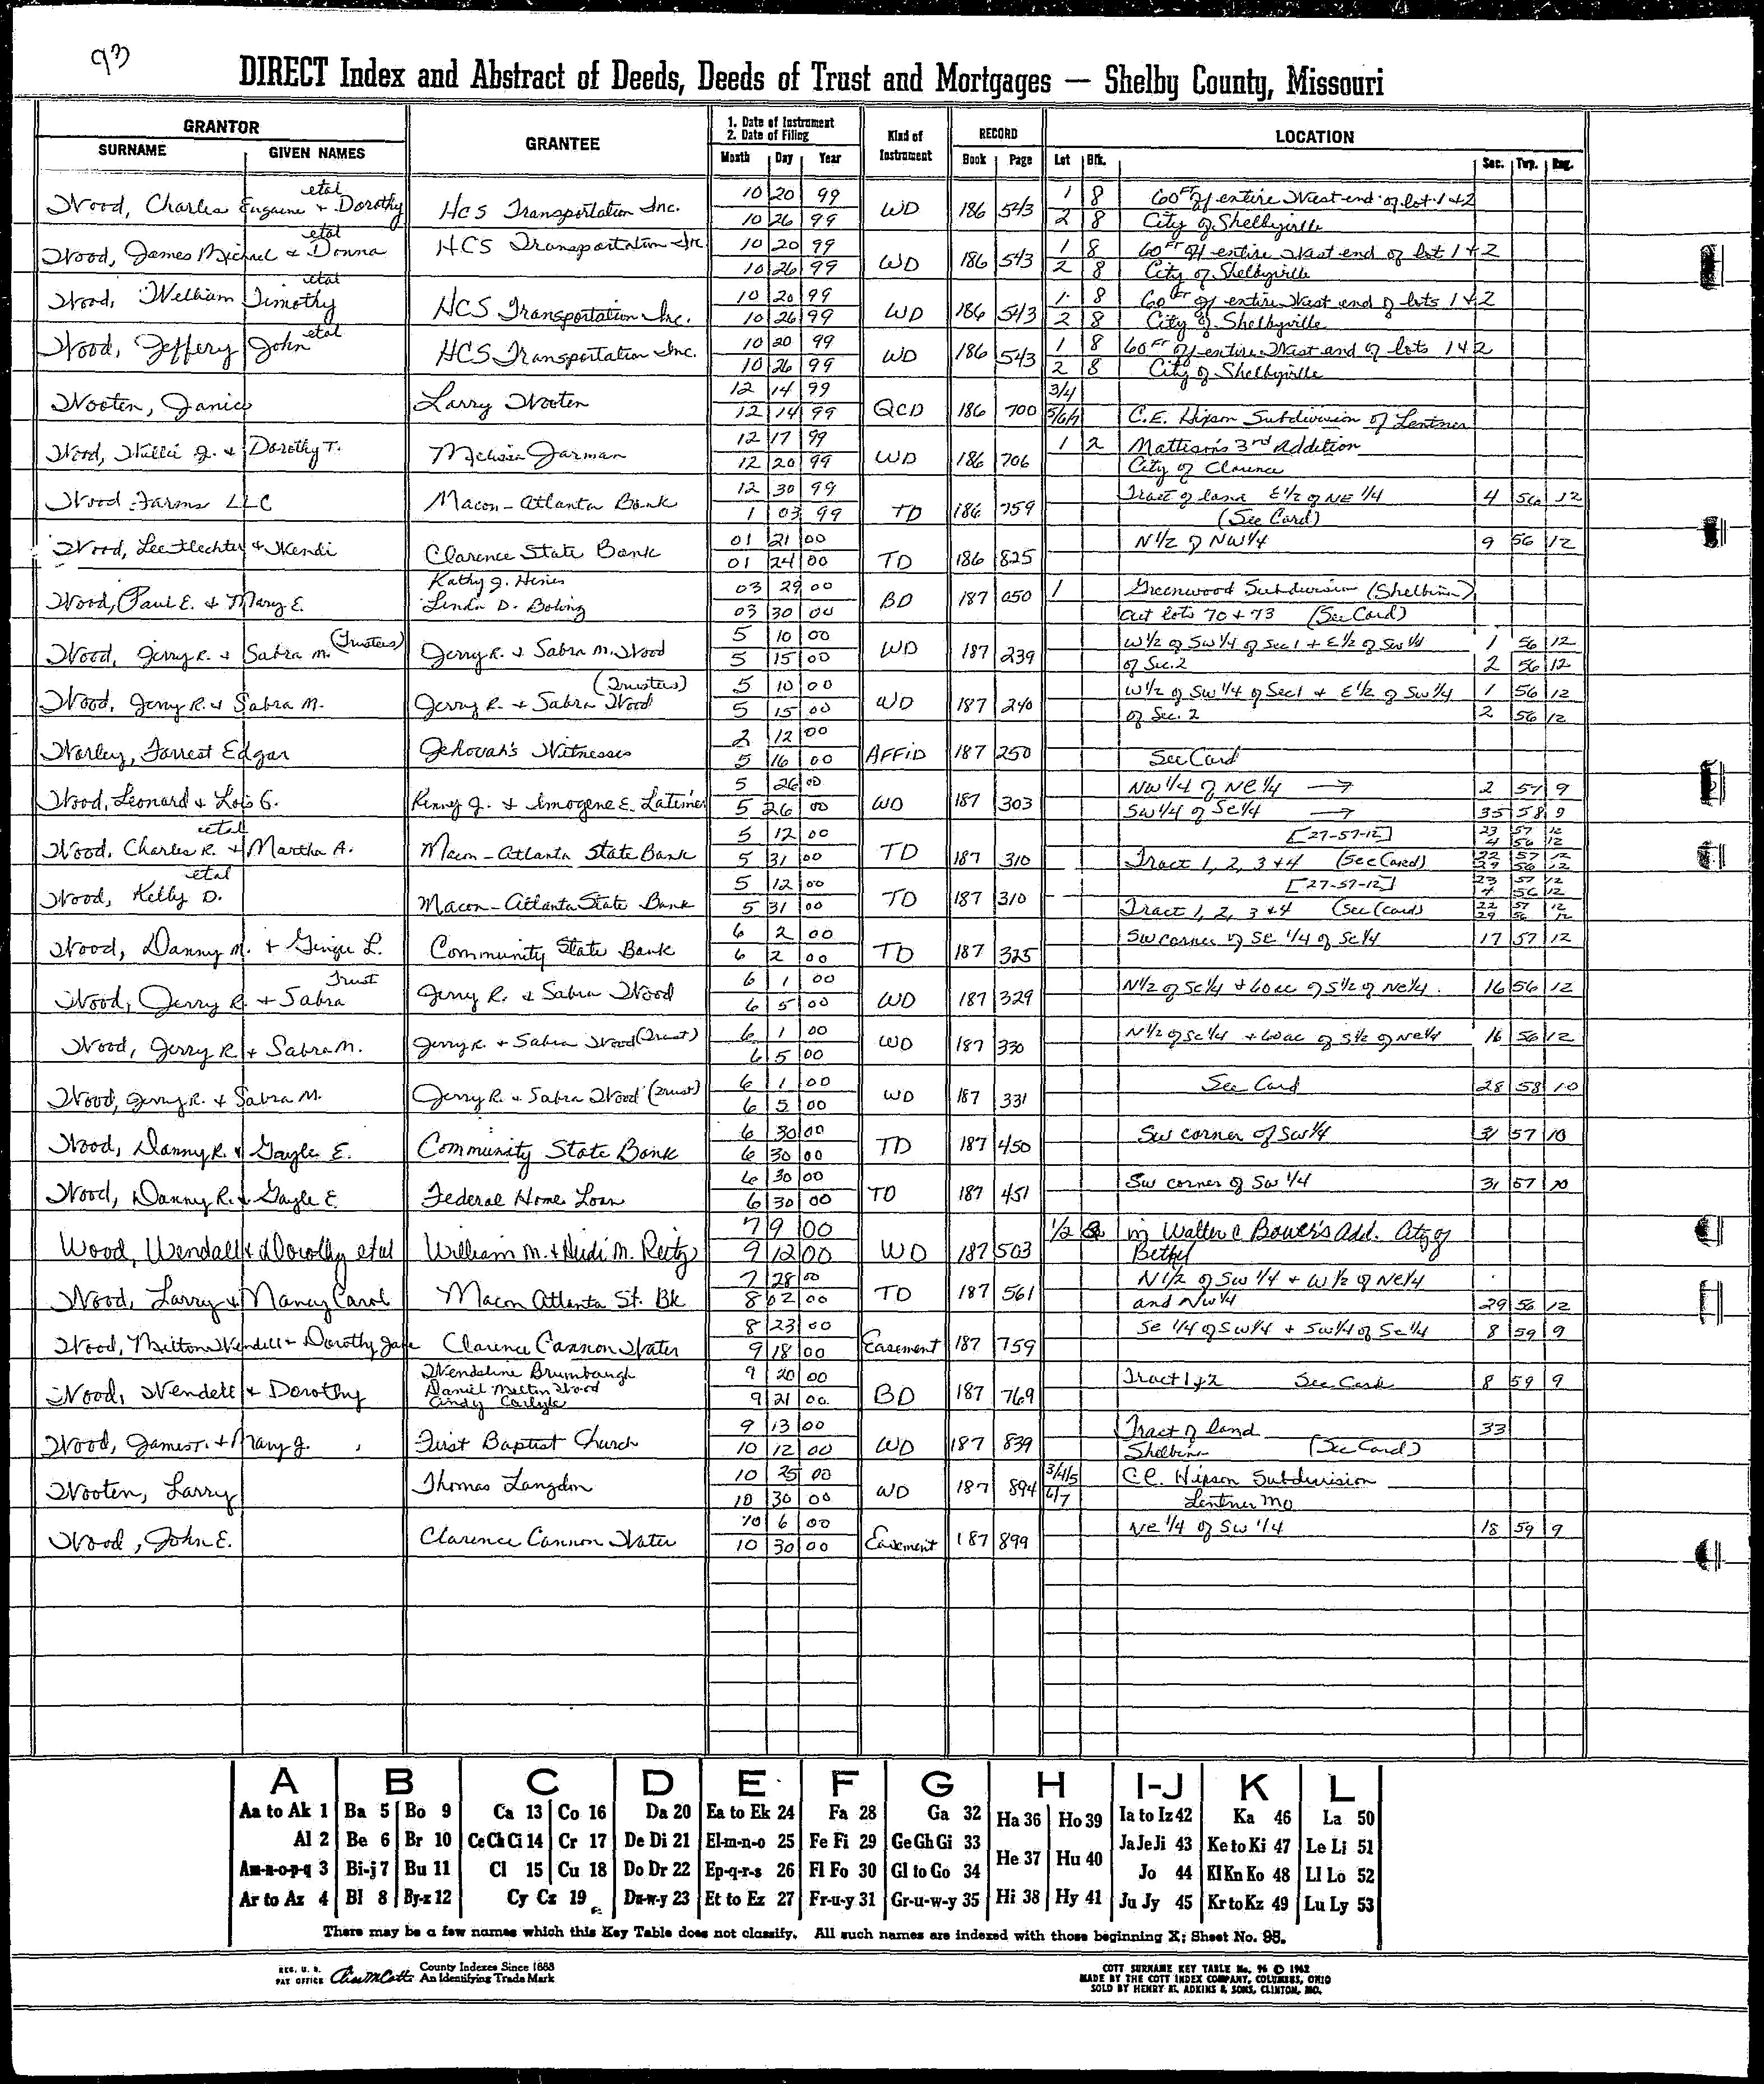 93
DIRECT Index and Abstract of Deeds, Deeds of Trust and Mortgages — Shelby County, Missouri
GRANTOR
SURNAME GIVEN NAMES
GRANTEE
1. Date of Instrument
2. Date of Filing
Month Day Year
Kind of Instrument
RECORD
Book Page
LOCATION
Lot Blk. Sec. Twp. Rng.
etal 10 20 99 1 8 60 Ft of entire West end of lot 1+2
Wood, Charles Eugene + Dorothy HCS Transportation Inc. 10 26 99 WD 186 543 2 8 City of Shelbyville
etal 10 20 99 1 8 60 Ft off entire West end of lot 1+2
Wood, James Michael & Donna HCS Transportation Inc 10 26 99 WD 186 543 2 8 City of Shelbyville
etal 10 20 99 1 8 60 Ft of entire West end of lots 1+2
Wood, William Timothy HCS Transportation Inc. 10 26 99 WD 186 543 2 8 City of Shelbyville
etal 10 20 99 1 8 60 Ft of entire West end of lots 1+2
Wood, Jeffery John HCS Transportation Inc. 10 26 99 WD 186 543 2 8 City of Shelbyville
12 14 99 3/4
Wooten, Janice Larry Wooten 12 14 99 QCD 186 700 5/6/7 C.E. Hipson Subdivision of Lentner
12 17 99 1 2 Mattison's 3rd Addition
Wood, Willie J. & Dorothy T. Melissa Jarman 12 20 99 WD 186 706 City of Clarence
12 30 99 Tract of land E1/2 of NE 1/4 4 56 12
Wood Farms LLC Macon-Atlanta Bank 1 03 99 TD 186 759 (See Card)
01 21 00 N1/2 of NW1/4 9 56 12
Wood, Lee Flechter & Wendi Clarence State Bank 01 24 00 TD 186 825
Kathy J. Hines 03 29 00 1 Greenwood Subdivision (Shelbina)
Wood, Paul E. & Mary E. Linda D. Boling 03 30 00 BD 187 050 Out lots 70+73 (See Card)
(Trustees) 5 10 00 W1/2 of SW1/4 of Sec 1 + E1/2 of SW1/4 1 56 12
Wood, Jerry R. & Sabra M. Jerry R. & Sabra M. Wood 5 15 00 WD 187 239 of Sec. 2 2 56 12
(Trustees) 5 10 00 W1/2 of SW1/4 of Sec 1 + E1/2 of SW1/4 1 56 12
Wood, Jerry R. & Sabra M. Jerry R. & Sabra Wood 5 15 00 WD 187 240 of Sec. 2 2 56 12
2 12 00
Worley, Forrest Edgar Jehovah's Witnesses 5 16 00 AFFID 187 250 See Card
5 26 00 NW1/4 of NE1/4 → 2 57 9
Wood, Leonard & Lois G. Kenny J. & Imogene E. Latimer 5 26 00 WD 187 303 SW1/4 of SE1/4 → 35 58 9
etal 5 12 00 [27-57-12] 23 57 12 4 56 12
Wood, Charles R. & Martha A. Macon-Atlanta State Bank 5 31 00 TD 187 310 Tract 1, 2, 3 +4 (See Card) 22 57 12 29 56 12
etal 5 12 00 [27-57-12] 23 57 12 4 56 12
Wood, Kelly D. Macon-Atlanta State Bank 5 31 00 TD 187 310 Tract 1, 2, 3 +4 (See Card) 22 57 12 29 56 12
6 2 00 SW corner of SE 1/4 of SE1/4 17 57 12
Wood, Danny M. + Ginger L. Community State Bank 6 2 00 TD 187 325
Trust 6 1 00 N1/2 of SE1/4 + 60 ac of S1/2 of NE1/4. 16 56 12
Wood, Jerry R. + Sabra Jerry R. & Sabra Wood 6 5 00 WD 187 329
6 1 00 N1/2 of SE1/4 + 60ac of S1/2 of NE1/4 16 56 12
Wood, Jerry R. + Sabra M. Jerry R. + Sabra Wood (Trust) 6 5 00 WD 187 330
6 1 00 See Card 28 58 10
Wood, Jerry R. & Sabra M. Jerry R. & Sabra Wood (Trust) 6 5 00 WD 187 331
6 30 00 SW corner of SW1/4 31 57 10
Wood, Danny R. & Gayle E. Community State Bank 6 30 00 TD 187 450
6 30 00 SW corner of SW 1/4 31 57 10
Wood, Danny R. & Gayle E Federal Home Loan 6 30 00 TD 187 451
7 9 00 1/2 in Walter C Bower's Add. City of
Wood, Wendall & Dorothy etal William M. & Heidi M. Reitz 9 12 00 WD 187 503 Bethel
7 28 00 N1/2 of SW 1/4 + W1/2 of NE1/4
Wood, Larry & Nancy Carol Macon Atlanta St. Bk 8 02 00 TD 187 561 and NW1/4 29 56 12
8 23 00 SE 1/4 of SW1/4 + SW1/4 of SE1/4 8 59 9
Wood, Milton Wendell & Dorothy Jane Clarence Cannon Water 9 18 00 Easement 187 759
Wendeline Brumbaugh 9 20 00 Tract 1 & 2 See Card 8 59 9
Wood, Wendell & Dorothy Daniel Milton Wood 9 21 00 BD 187 769
Cindy Carlyle
9 13 00 Tract of land 33
Wood, James T. + Mary J. First Baptist Church 10 12 00 WD 187 839 Shelbina (See Card)
10 25 00 3/4/5 C.E. Hipson Subdivision
Wooten, Larry Thomas Langdon 10 30 00 WD 187 894 6/7 Lentner Mo
10 6 00 NE 1/4 of SW 1/4 18 59 9
Wood, John E. Clarence Cannon Water 10 30 00 Easement 187 899
A B C D E F G H I-J K L
Aa to Ak 1 Ba 5 Bo 9 Ca 13 Co 16 Da 20 Ea to Ek 24 Fa 28 Ga 32 Ha 36 Ho 39 Ia to Iz 42 Ka 46 La 50
Al 2 Be 6 Br 10 Ce Ch Ci 14 Cr 17 De Di 21 El-m-n-o 25 Fe Fi 29 Ge Gh Gi 33 He 37 Hu 40 Ja Je Ji 43 Ke to Ki 47 Le Li 51
Am-n-o-p-q 3 Bi-j 7 Bu 11 Cl 15 Cu 18 Do Dr 22 Ep-q-r-s 26 Fl Fo 30 Gl to Go 34 Jo 44 Kl Kn Ko 48 Ll Lo 52
Ar to Az 4 Bl 8 By-z 12 Cy Cz 19 Du-w-y 23 Et to Ez 27 Fr-u-y 31 Gr-u-w-y 35 Hi 38 Hy 41 Ju Jy 45 Kr to Kz 49 Lu Ly 53
There may be a few names which this Key Table does not classify. All such names are indexed with those beginning X; Sheet No. 95.
REG. U. S. PAT OFFICE County Indexes Since 1888 An Identifying Trade Mark
COTT SURNAME KEY TABLE No. 96 © 1962
MADE BY THE COTT INDEX COMPANY, COLUMBUS, OHIO
SOLD BY HENRY M. ADKINS & SONS, CLINTON, MO.